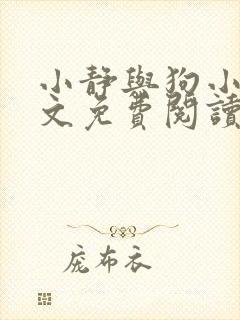 小靜與狗小
文免費閱讀
庞布衣